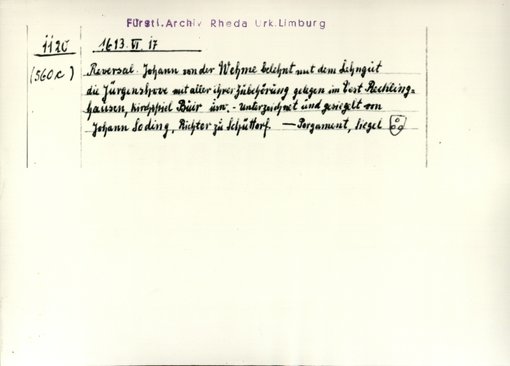 Fürstl.Archiv Rheda Urk.Limburg
1120 1613. VI. 17
(560c) Reversal. Johann von der Wehme belehnt mit dem Lehngut
die Jürgenshove mit aller ihrer Zubehörung gelegen im Vest Reckling=
hausen, Kirchspiel Buer usw. - Unterzeichnet und gesiegelt von
Johann Soding, Richter zu Schüttorf. — Pergament, Siegel